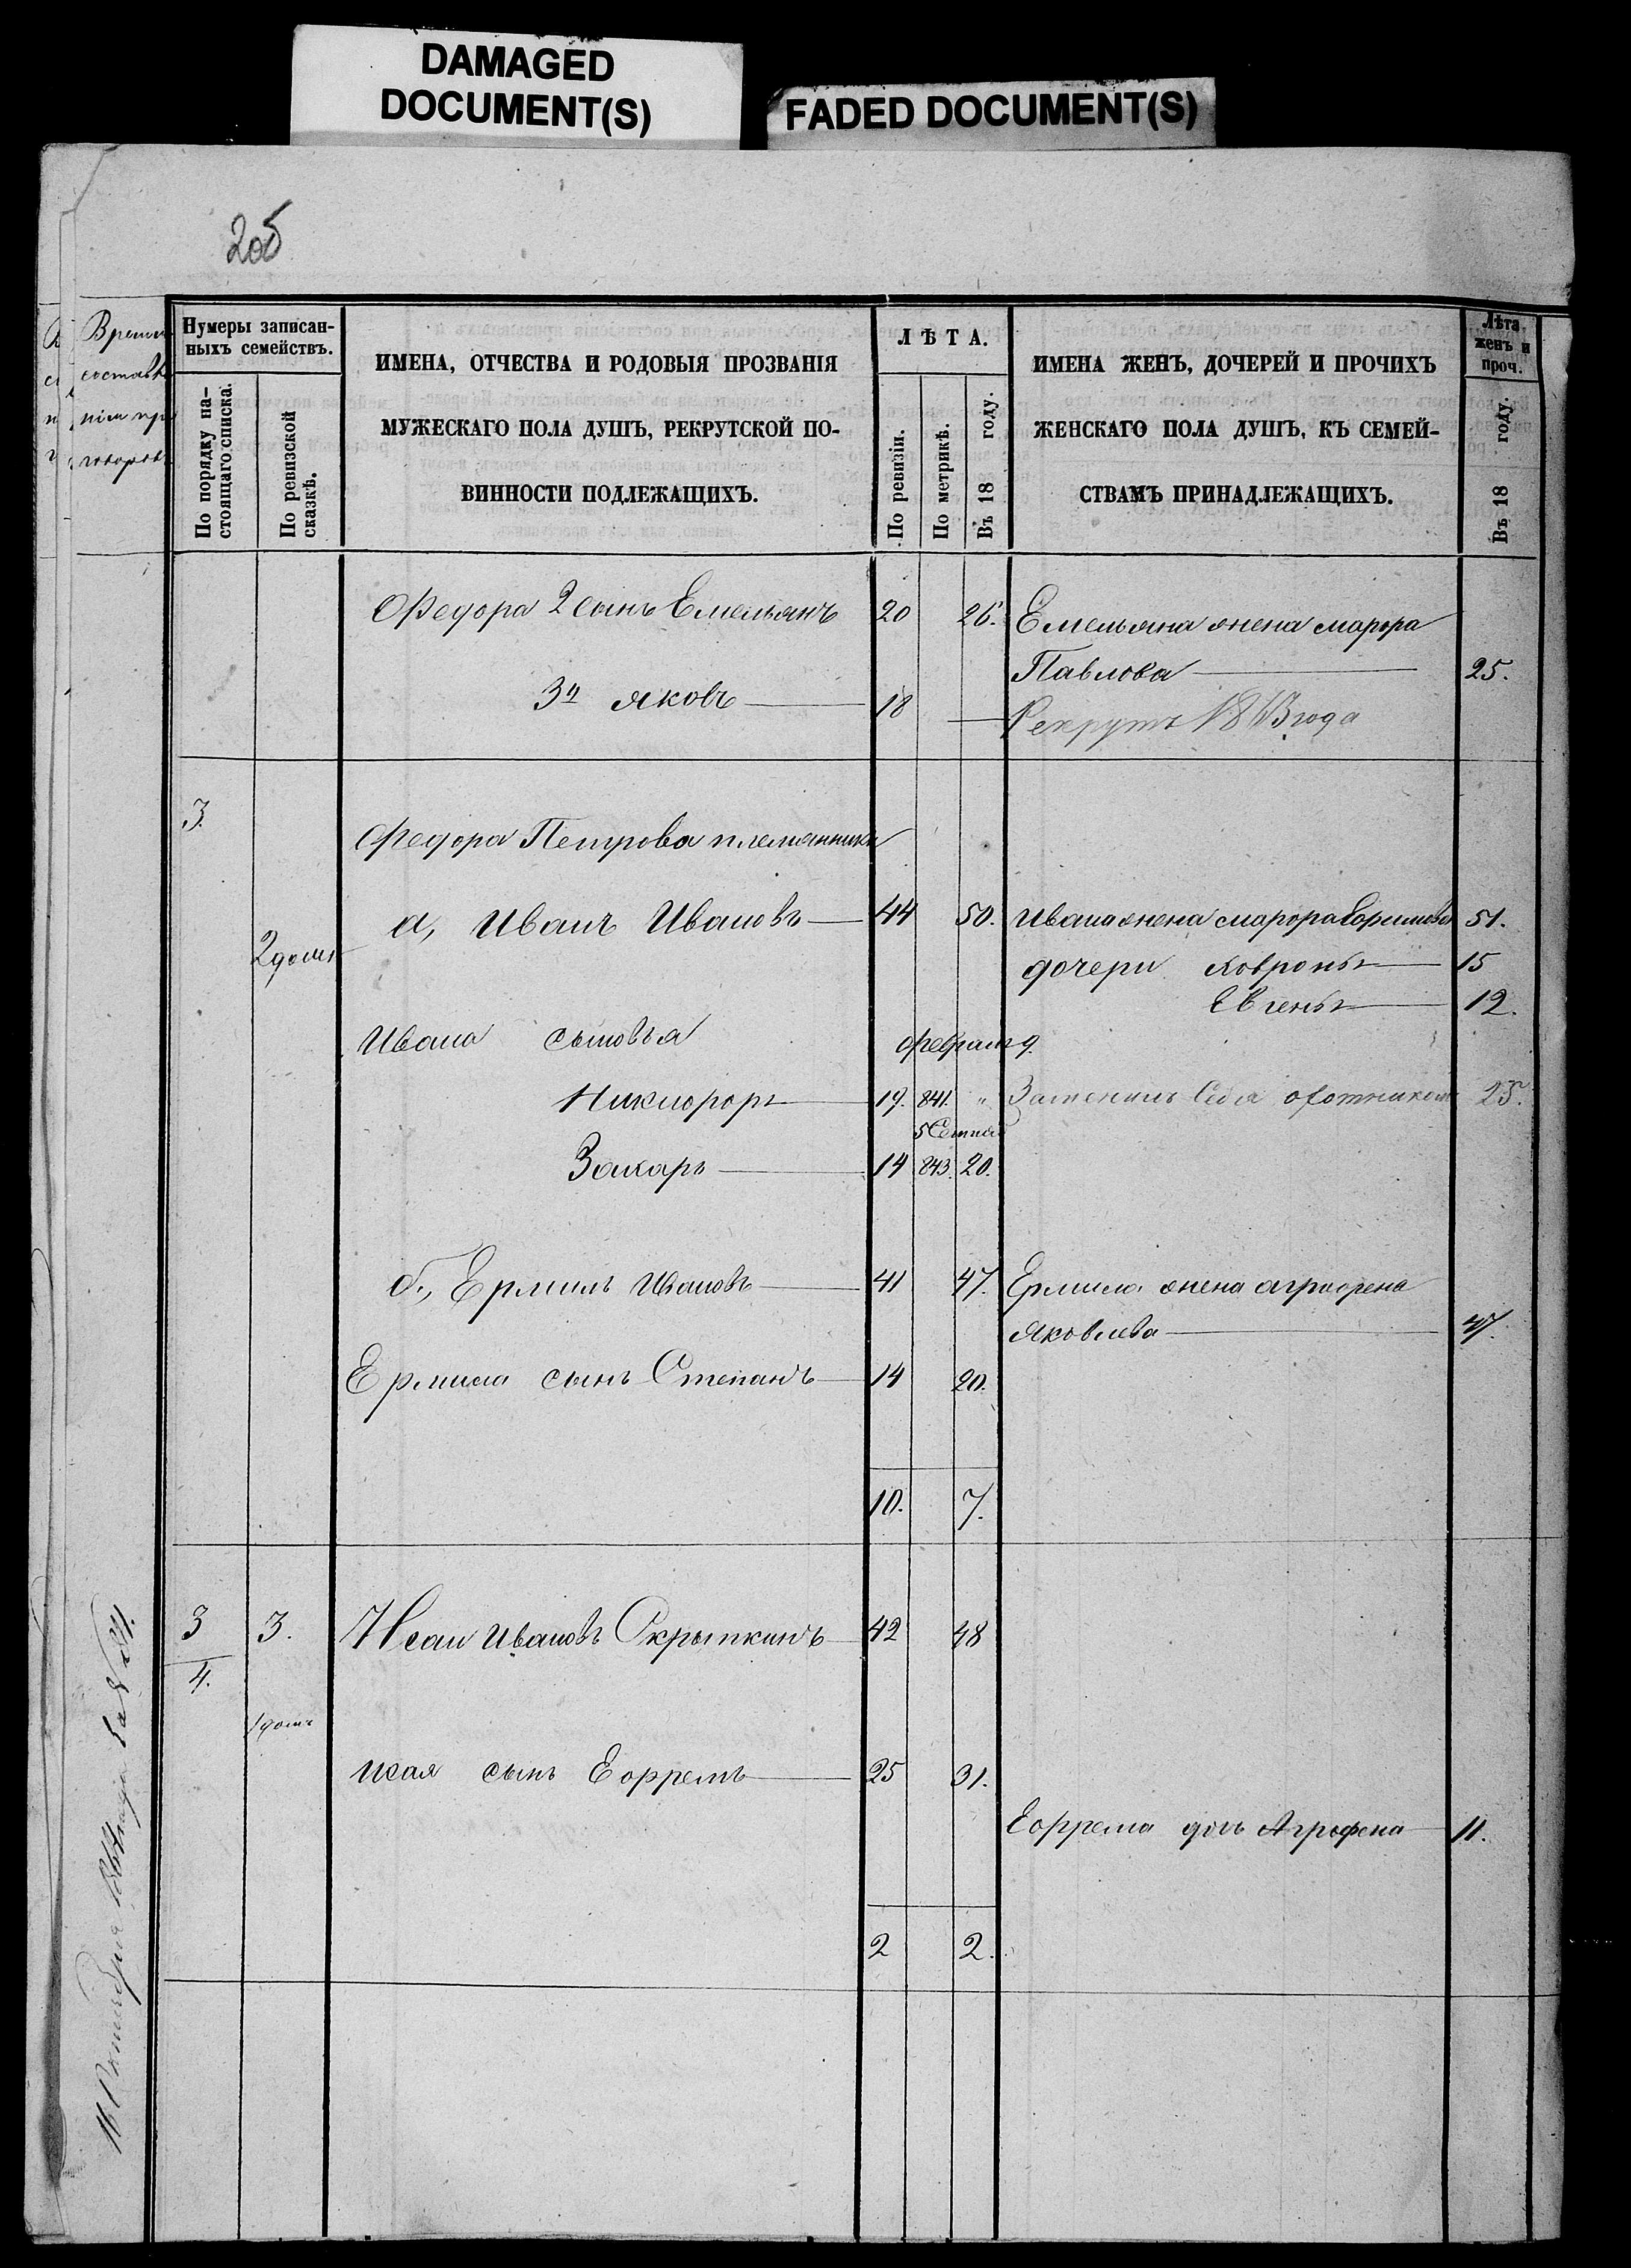 DAMAGED
DOCUMENT(S)
FADED DOCUMENT(S)
205
Нумеры записан-
ныхъ семействъ.
По порядку на-
стоящаго списка.
По ревизской
сказкѣ.
ИМЕНА, ОТЧЕСТВА И РОДОВЫЯ ПРОЗВАНІЯ
МУЖЕСКАГО ПОЛА ДУШЪ, РЕКРУТСКОЙ ПО-
ВИННОСТИ ПОДЛЕЖАЩИХЪ.
ЛѢТА.
По ревизіи.
По метрикѣ.
Въ 18 году.
ИМЕНА ЖЕНЪ, ДОЧЕРЕЙ И ПРОЧИХЪ
ЖЕНСКАГО ПОЛА ДУШЪ, КЪ СЕМЕЙ-
СТВАМЪ ПРИНАДЛЕЖАЩИХЪ.
Лѣта
женъ и
проч.
Въ 18 году.
Федора 2 сынъ Емельянъ 20 26. Емельяна жена Марфа
Павлова 25.
3й Яковъ 18 Рекрутъ 1863 года
3.
Федора Петрова племянники
2 домъ
а, Иванъ Ивановъ 44 50. Ивана жена Марфа Ефимова 51.
дочери Ховронья 15
Евгенья 12.
Ивана сыновья Февраля 9.
Никифоръ 19. 841. " Заменилъ себя охотникомъ 25.
Захаръ 14 843. 20.
б, Ермилъ Ивановъ 41 47. Ермила жена Аграфена
Яковлева 47.
Ермила сынъ Степанъ 14 20.
10. 7.
3 3. Исаи Ивановъ Скрыпкинъ 42 48
4.
1 домъ
Исая сынъ Ефремъ 25 31.
Ефрема дочь Аграфена 11.
2 2.